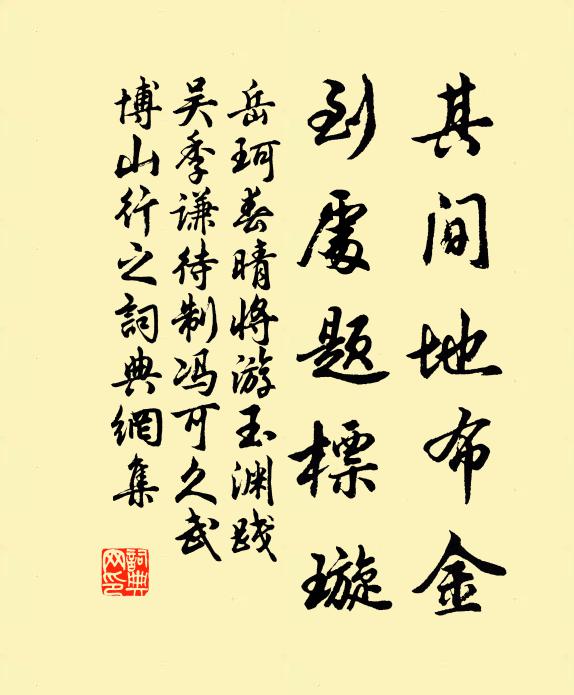 其间地布金
到处题標璇
岳珂春晴将游玉渊践
吴季谦待制冯可久武
博山行之詞典網集
詞典網印